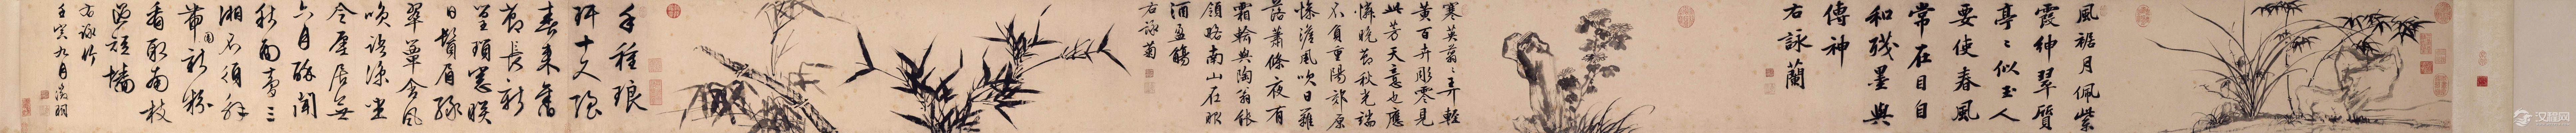 風裾月佩紫
霞紳翠質
亭〻似玉人
要使春風
常在目自
和殘墨與
傳神
右詠蘭
寒英〻弄輕
黃百卉彫零見
此芳天意也應
憐晚節秋光端
不負重陽郊原
慘澹風吹日籬
落蕭條夜有
霜輸與陶翁能
領略南山在眼
酒盈觴
右詠菊
手種琅
玕十尺強
春來舊
節長新
篁瑣窗映
日鬢眉綠
翠簟含風
咲語涼坐
令塵居無
六月醉聞
秋雨夢三
湘不須解
新粉
看取南枝
過短牆
右詠竹
壬寅九月徵明
汉程网